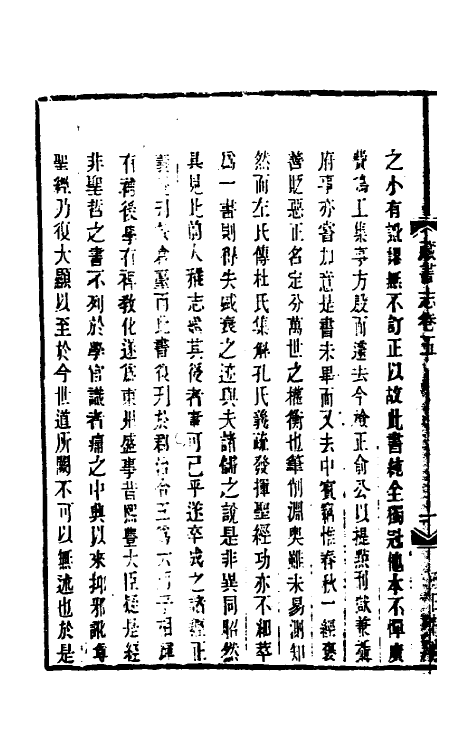 之小有訛謬無不訂正以故此書純全獨冠他本不憚廣
費鳩工集事方殷而遷去今檢正俞公以提點刑獄兼攝
府事亦嘗加意是書未畢而又去中賓竊惟春秋一經褒
善貶惡正名定分萬世之權衡也筆削淵奧雖未易測知
然而左氏傳杜氏集解孔氏義疏發揮聖經功亦不細萃
爲一書則得失盛衰之迹與夫諸儒之說是非異同昭然
具見此前人雅志繼其後者事可已乎遂卒成之諸經正
義刊於倉臺而此書復刊於郡治合五爲六相輝
有裨後學有裨敎化遂爲東州盛事昔熙豐大臣疑是經
非聖哲之書不列於學官識者痛之中興以來抑邪說尊
聖經乃復大顯以至於今世道所關不可以無述也於是
藏書志卷五